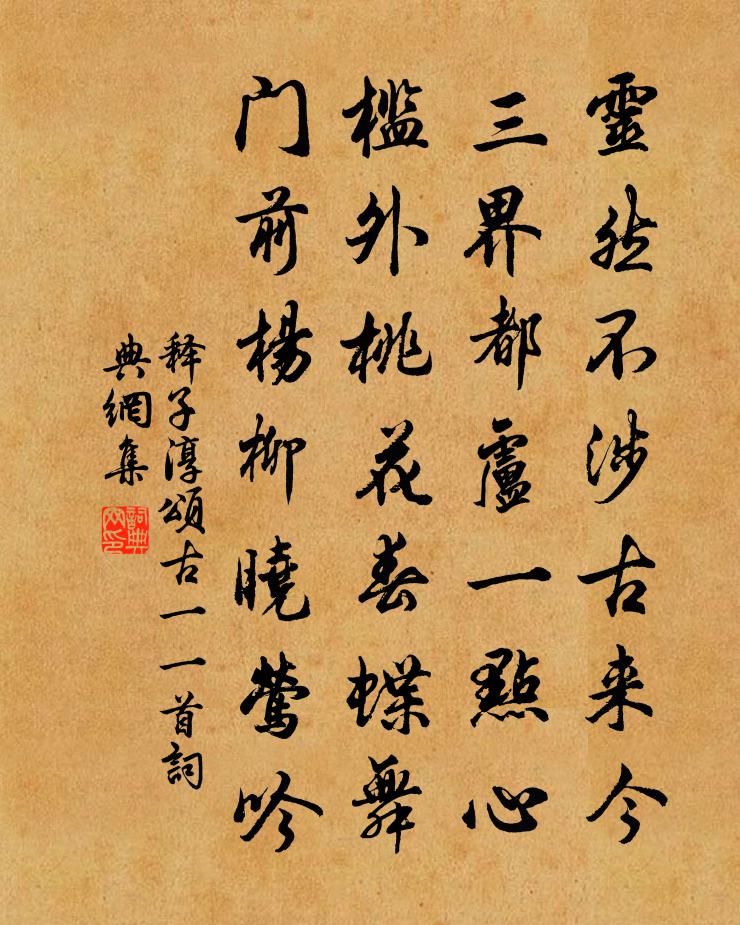 靈然不涉古来今
三界都盧一點心
檻外桃花春蝶舞
门前楊柳曉鶯吟
释子淳頌古一一首詞
典網集
詞典網印